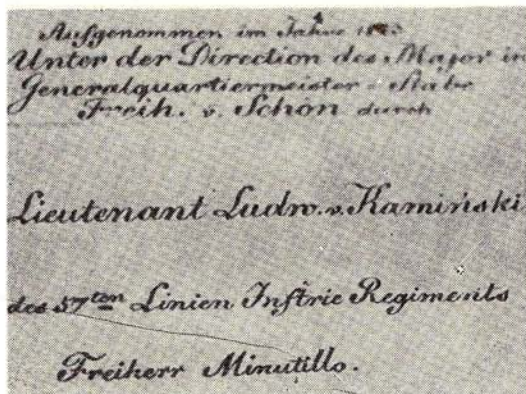 Aufgenommen im Jahre
Unter der Direction des Major im
Generalquartiermeister-Stabe
Freih. v. Schön durch
Lieutenant Ludw. v. Kamiński
des 57ten Linien Inftrie Regiments
Freiherr Minutillo.